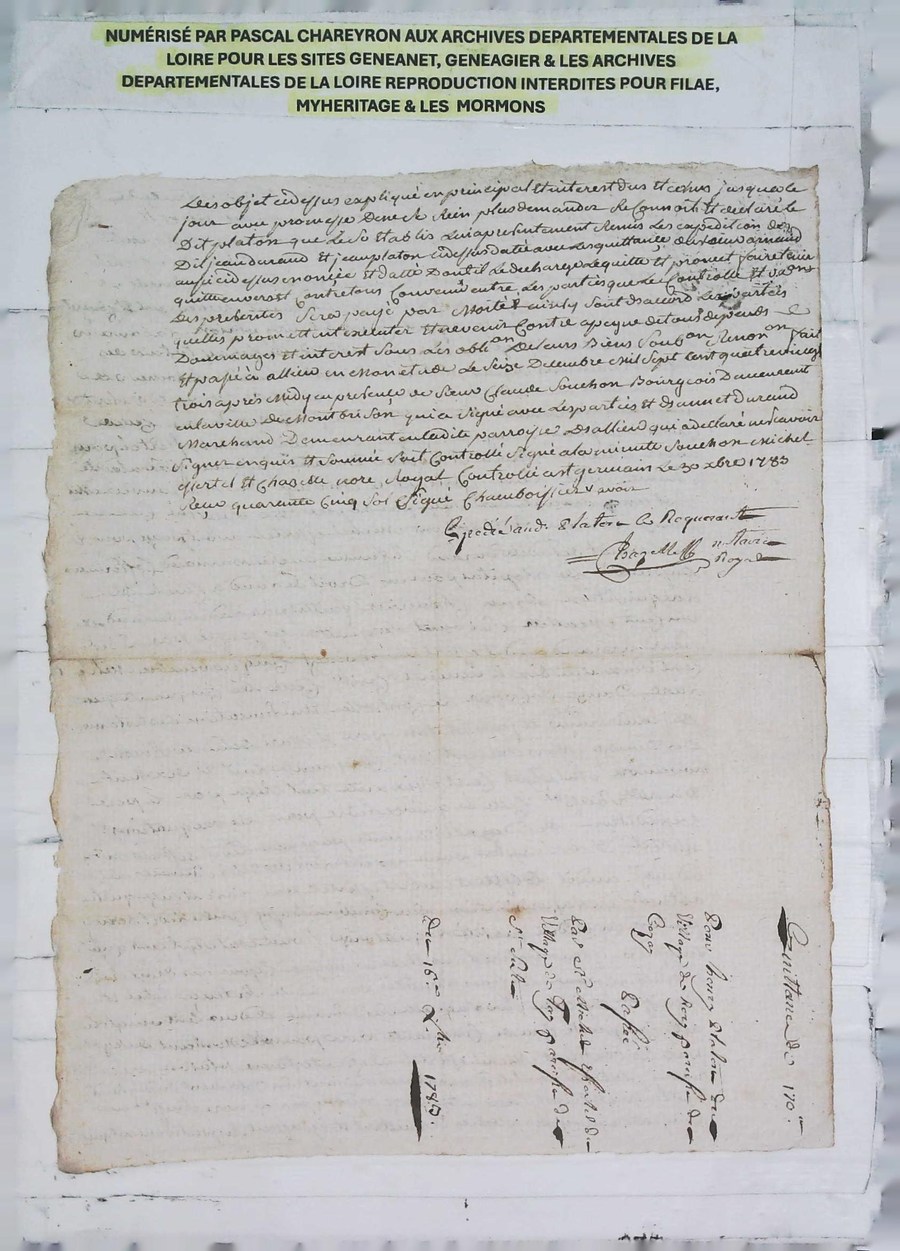 NUMÉRISÉ PAR PASCAL CHAREYRON AUX ARCHIVES DEPARTEMENTALES DE LA
LOIRE POUR LES SITES GENEANET, GENEAGIER & LES ARCHIVES
DEPARTEMENTALES DE LA LOIRE REPRODUCTION INTERDITES POUR FILAE,
MYHERITAGE & LES MORMONS
Les objet cidessus expliqué en principal et interest dus et echus jusques a ce
jour avec promesse de ne le Rien plus demander Reconnoit et declaré le
Dit platon que led etablis luiapresentement Remis Les expedition des
Dit jean durand et jean platon cidessus datté avec les quittance
aussi cidessus enoncée et datté Dont il le decharge Lequitte et promet faire tenir
quitte envers et Contre tous Convenu entre Les parties que le Controlle et
Des presentes Sera payé par Moitié ainsy Sont d'accord Les parties
quelles promettent executer et revenir Contre a peyne de tous depends
Dommages et interest Sous Les oblion De Leurs Biens Soubon Renonon fait
Et passé à allieu en Mon etude Le Seize Decembre Mil Sept Cent quatre vingt
trois après Midy en presence de Sieur Claude Souchon Bourgeois Demeurant
en la ville De Montbrison qui a Signé avec Les parties et durand
Marchand Demeurant en ladite parroisse Dallieu qui a declaré ne Scavoir
Signer enquis et Sommé Soit Controllé Signé a la minute Souchon Michel
et Chazelle nore Royal Controllé a st germain Le 30 xbre 1783
Reçu quarante Cinq Sol Signé Chamboissier
Platon Le Requerant
Chazelle notaire
Royal
Quittance de 170#
Pour Platon de
Village de paroisse de
Passé
Par St Michel de
Village de paroisse de
du 16e Xbre 1783.